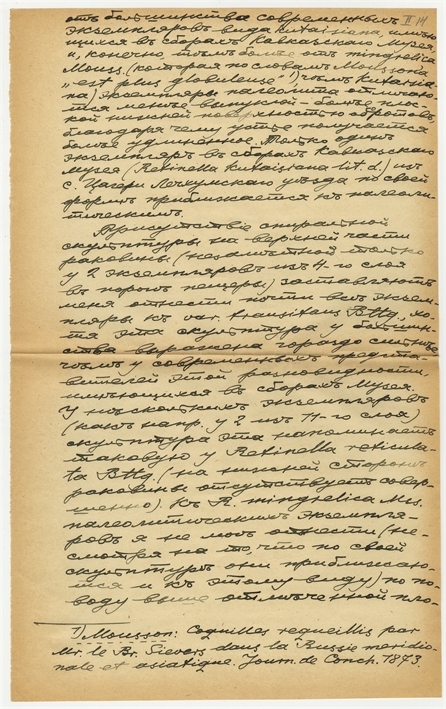 отъ большинства современныхъ II 14
экземпляровъ вида kutaisiana, имѣю-
щихся въ сборахъ Кавказскаго Музея,
и, конечно, тѣмъ болѣе отъ mingrelica
Mouss. (которая по словамъ Moussona
"est plus globuleuse" 1) чѣмъ kutaisia-
na) экземпляры палеолита отличаю-
тся менѣе выпуклой - болѣе плос-
кой нижней поверхностью оборотовъ,
благодаря чему устье получается
болѣе удлиненное. Только одинъ
экземпляръ въ сборахъ Кавказскаго
музея (Retinella kutaisiana lit. d.) изъ
с. Цагери Лечхумскаго уѣзда по своей
формѣ приближается къ палеоли-
тическимъ.
Присутствіе спиральной
скульптуры на верхней части
раковины (незамѣтной только
у 2 экземпляровъ изъ 4-го слоя
въ порогѣ пещеры) заставляютъ
меня отнести почти всѣ экзем-
пляры къ var. transitans Bttg., хо-
тя эта скульптура у большин-
ства выражена гораздо сильнѣе
чѣмъ у современныхъ предста-
вителей этой разновидности,
имѣющихся въ сборахъ Музея.
У нѣсколькихъ экземпляровъ
(какъ напр. у 2 изъ 11-го слоя)
скульптура эта напоминаетъ
таковую у Retinella reticula-
ta Bttg. (на нижней сторонѣ
раковины отсутствуетъ совер-
шенно). Къ R. mingrelica Mss.
палеолитическихъ экземпля-
ровъ я не могъ отнести (не-
смотря на то, что по своей
скульптурѣ они приближаю-
тся и къ этому виду) по по-
воду выше отмѣченной пло-
1) Mousson: Coquilles requeillis par
Mr. le Dr. Sievers dans la Russie meridio-
nale et asiatique. Journ. de Conch. 1873.